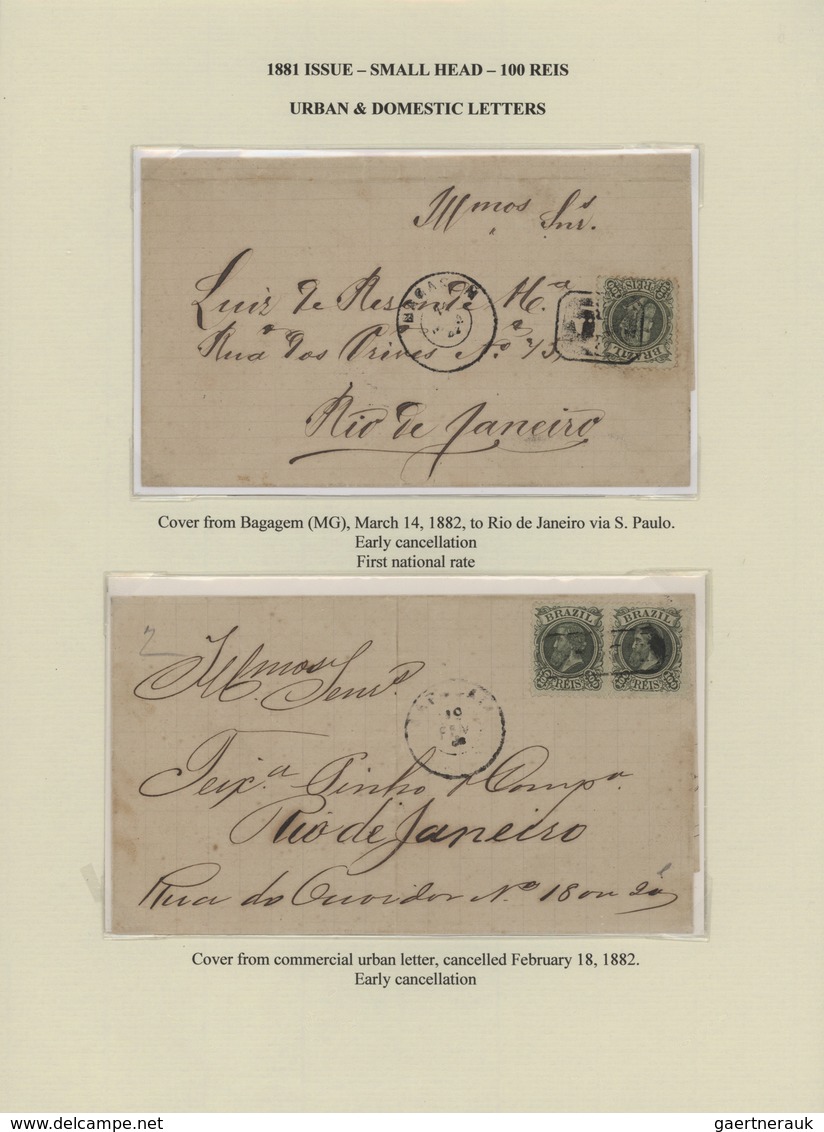 1881 ISSUE – SMALL HEAD – 100 REIS
URBAN & DOMESTIC LETTERS
Illmos Snrs.
Luiz de Rezende
Rua dos Ourives No
Rio de Janeiro
BAGAGEM
BRAZIL
REIS
Cover from Bagagem (MG), March 14, 1882, to Rio de Janeiro via S. Paulo.
Early cancellation
First national rate
2
BRAZIL
BRAZIL
REIS
REIS
Illmos Senrs.
FEV
Teixa. Pinho & Compa.
Rio de Janeiro
Rua do Ouvidor No 18 ou 20
Cover from commercial urban letter, cancelled February 18, 1882.
Early cancellation
www.delcampe.net
gaertnerauk